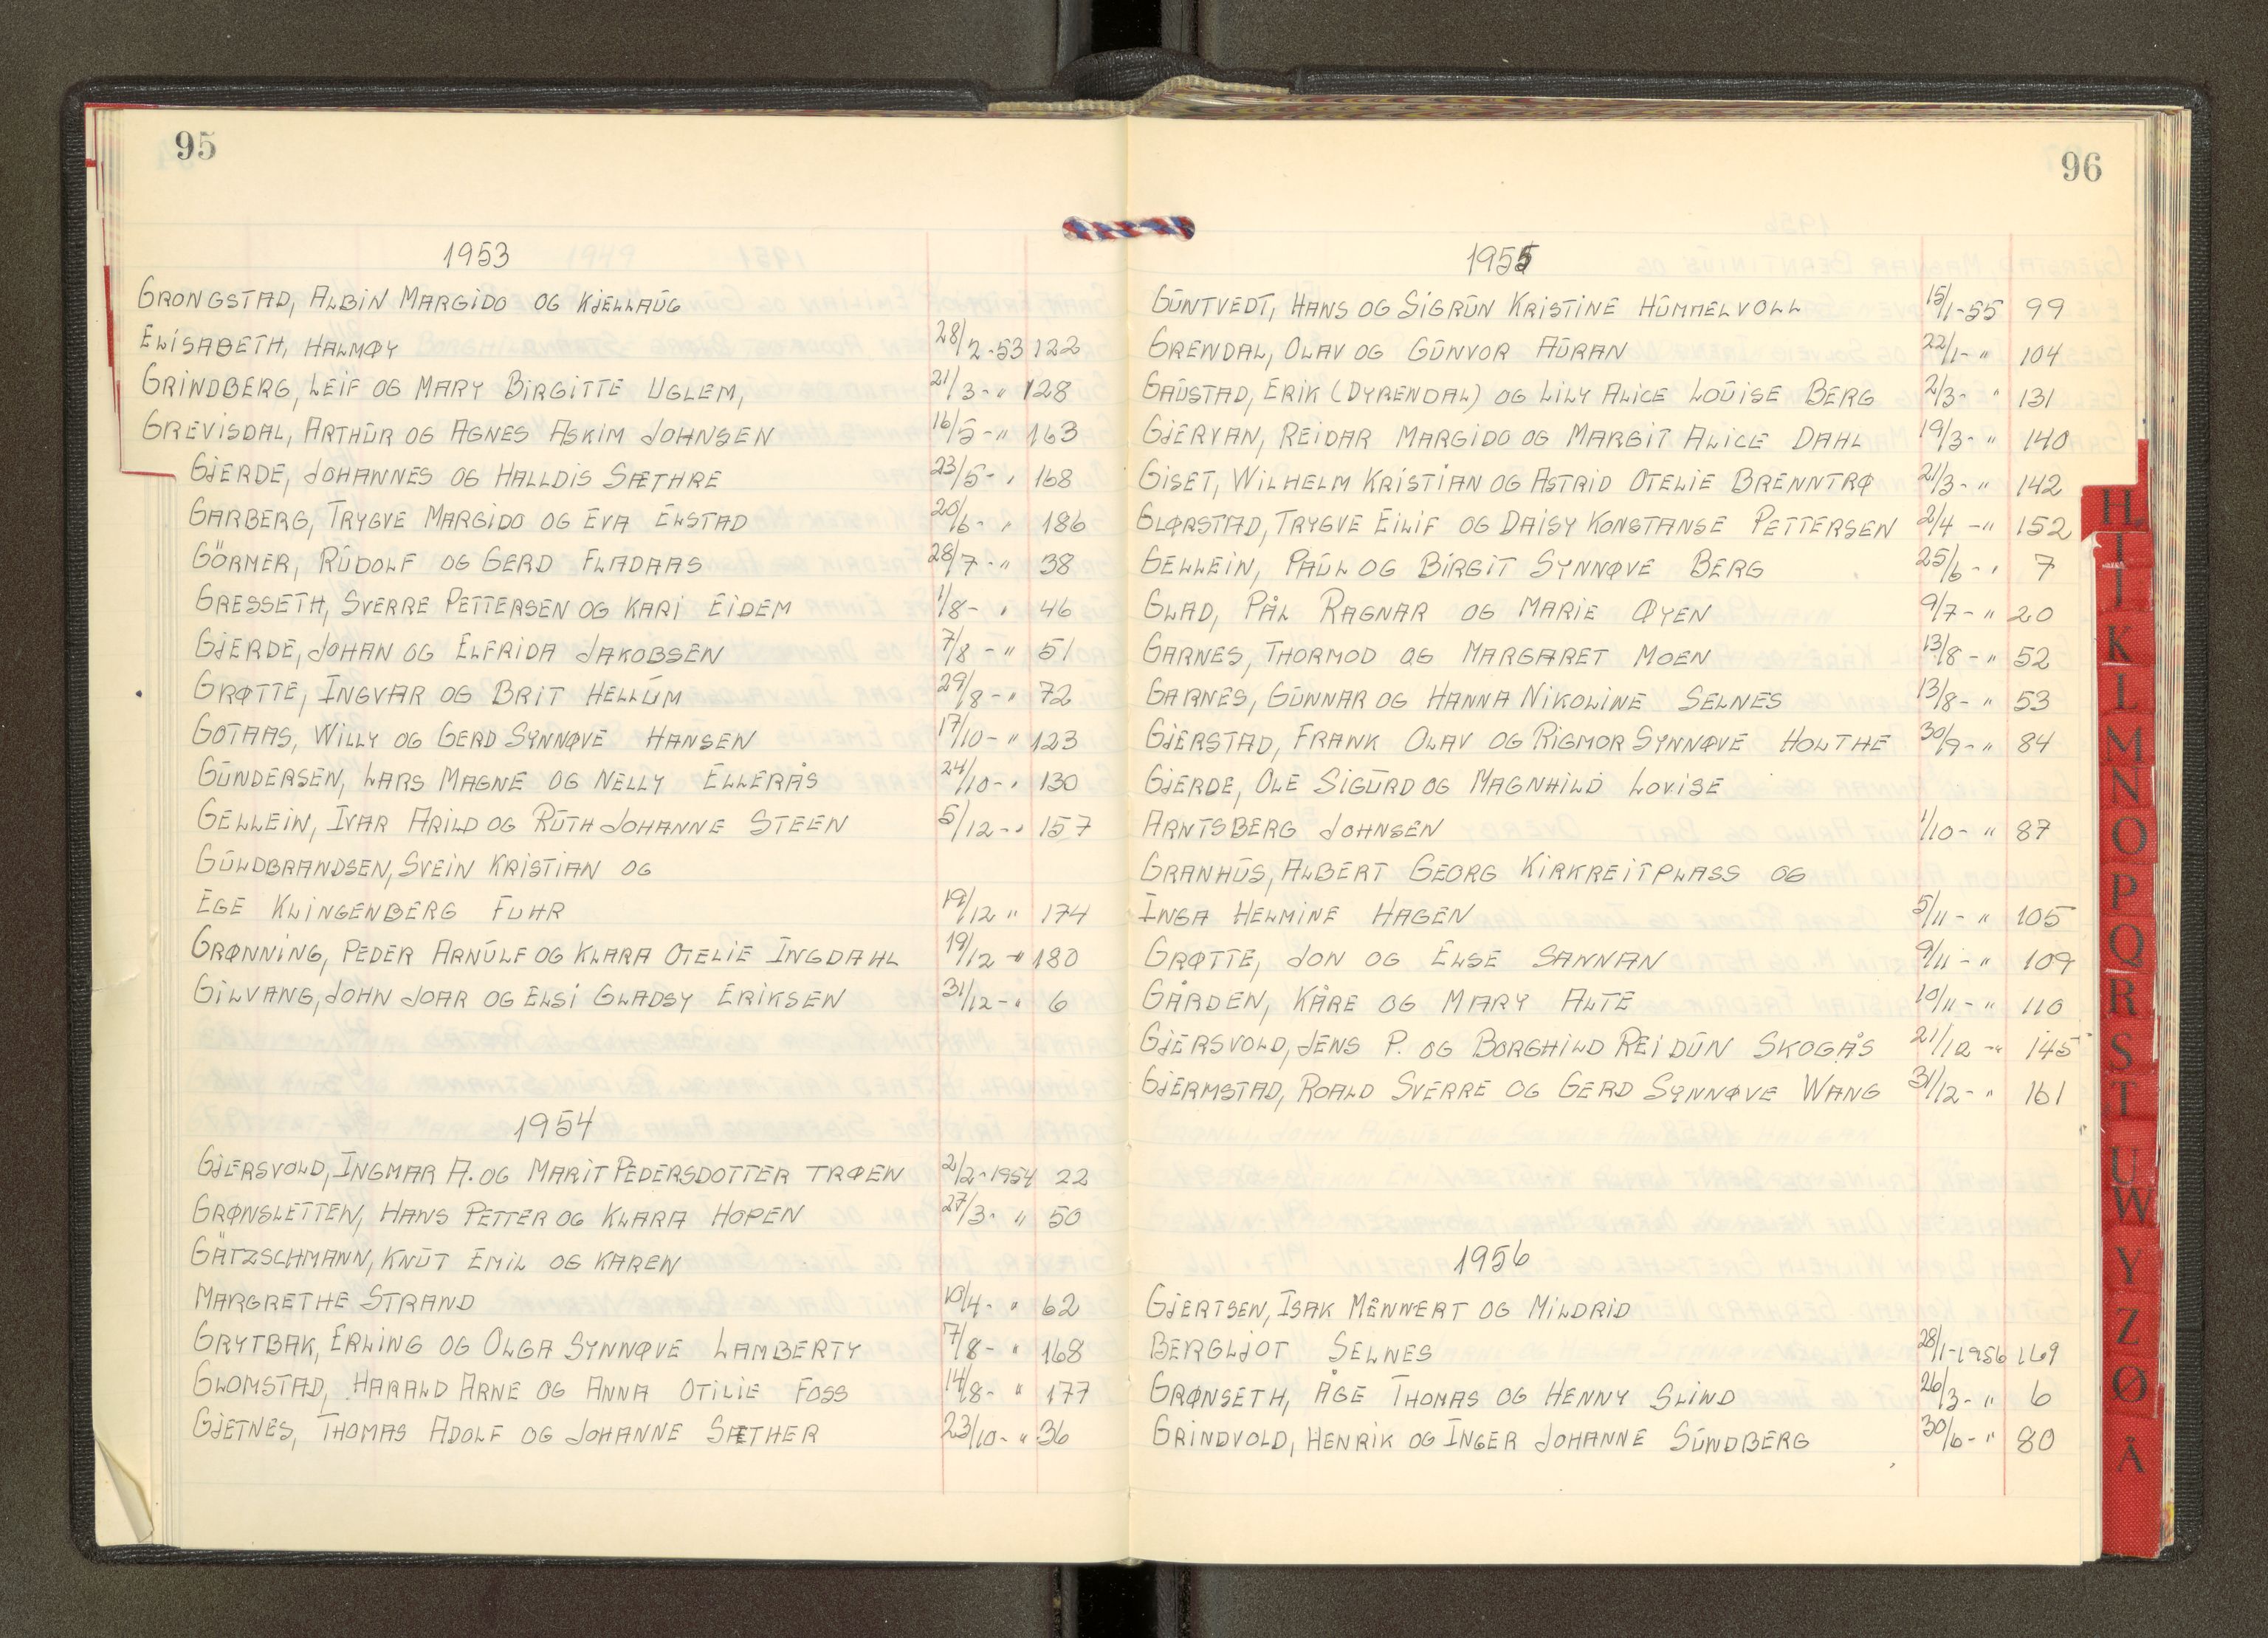 95
1953
GRONGSTAD, ALBIN MARGIDO OG KJELLAUG
ELISABETH, HALMØY 28/2-53 122
GRINDBERG, LEIF OG MARY BIRGITTE UGLEM, 21/3-" 128
GREVISDAL, ARTHUR OG AGNES ASKIM JOHNSEN 16/5-" 163
GJERDE, JOHANNES OG HALLDIS SÆTHRE 23/5-" 168
GARBERG, TRYGVE MARGIDO OG EVA ELSTAD 20/6-" 186
GÖRMER, RUDOLF OG GERD FLADAAS 28/7-" 38
GRESSETH, SVERRE PETTERSEN OG KARI EIDEM 1/8-" 46
GJERDE, JOHAN OG ELFRIDA JAKOBSEN 7/8-" 51
GRØTTE, INGVAR OG BRIT HELLUM 29/8-" 72
GOTAAS, WILLY OG GERD SYNNØVE HANSEN 17/10-" 123
GUNDERSEN, LARS MAGNE OG NELLY ELLERÅS 24/10-" 130
GELLEIN, IVAR ARILD OG RUTH JOHANNE STEEN 5/12-" 157
GULDBRANDSEN, SVEIN KRISTIAN OG
EGE KLINGENBERG FUHR /12 " 174
GRØNNING, PEDER ARNULF OG KLARA OTELIE INGDAHL 19/12-" 180
GILVANG, JOHN JOAR OG ELSI GLADSY ERIKSEN 31/12-" 6
1954
GJERSVOLD, INGMAR A. OG MARIT PEDERSDOTTER TRØEN 2/2-1954 22
GRØNSLETTEN, HANS PETTER OG KLARA HOPEN 27/3-" 50
GÄTZSCHMANN, KNUT EMIL OG KAREN
MARGRETHE STRAND 10/4-" 62
GRYTBAK, ERLING OG OLGA SYNNØVE LAMBERTY 7/8-" 168
GLOMSTAD, HARALD ARNE OG ANNA OTILIE FOSS 14/8-" 177
GJETNES, THOMAS ADOLF OG JOHANNE SÆTHER 23/10-" 36
96
1955
GUNTVEDT, HANS OG SIGRUN KRISTINE HUMMELVOLL 15/1-55 99
GRENDAL, OLAV OG GUNVOR AURAN 22/1-" 104
GAUSTAD, ERIK (DYRENDAL) OG LILY ALICE LOUISE BERG 2/3-" 131
GJERVAN, REIDAR MARGIDO OG MARGIT ALICE DAHL 19/3-" 140
GISET, WILHELM KRISTIAN OG ASTRID OTELIE BRENNTRØ 21/3-" 142
GLØRSTAD, TRYGVE EILIF OG DAISY KONSTANSE PETTERSEN 2/4-" 152
GELLEIN, PAUL OG BIRGIT SYNNØVE BERG 25/6-" 7
GLAD, PÅL RAGNAR OG MARIE ØYEN 9/7-" 20
GARNES, THORMOD OG MARGARET MOEN 13/8-" 52
GARNES, GUNNAR OG HANNA NIKOLINE SELNES 13/8-" 53
GJERSTAD, FRANK OLAV OG RIGMOR SYNNØVE HOLTHE 30/9-" 84
GJERDE, OLE SIGURD OG MAGNHILD LOVISE
ARNTSBERG JOHNSEN 1/10-" 87
GRANHUS, ALBERT GEORG KIRKREITPLASS OG
INGA HELMINE HAGEN 5/11-" 105
GRØTTE, JON OG ELSE SANNAN 9/11-" 109
GÅRDEN, KÅRE OG MARY ALTE 10/11-" 110
GJERSVOLD, JENS P. OG BORGHILD REIDUN SKOGÅS 21/12-" 145
GJERMSTAD, ROALD SVERRE OG GERD SYNNØVE WANG 31/12-" 161
1956
GJERTSEN, ISAK MENNERT OG MILDRID
BERGLJOT SELNES 28/1-1956 169
GRØNSETH, ÅGE THOMAS OG HENNY SLIND 26/3-" 6
GRINDVOLD, HENRIK OG INGER JOHANNE SUNDBERG 30/6-" 80
H
I
K
L
M
N
O
P
Q
R
S
T
U
W
Y
Z
Ø
Å